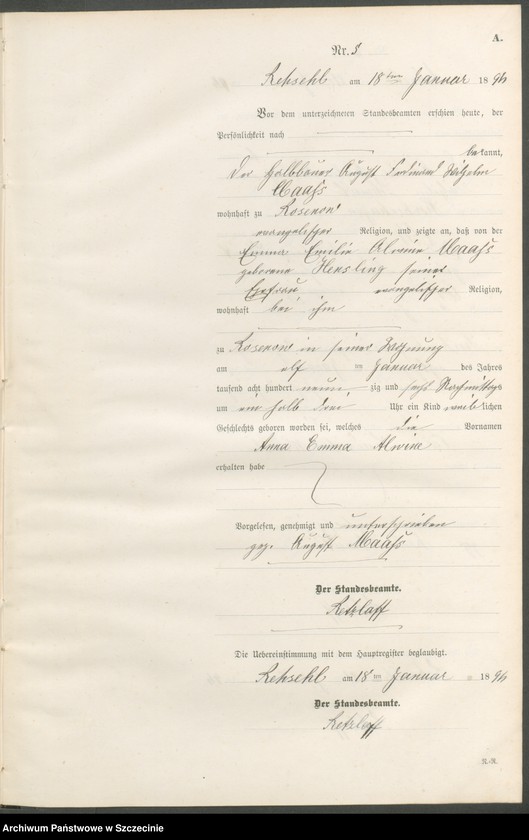 A.
Nr. 8
Rehsehl am 18ten Januar 1896
Vor dem unterzeichneten Standesbeamten erschien heute, der
Persönlichkeit nach
bekannt,
der Halbbauer August Ferdinand Wilhelm
Maaß
wohnhaft zu Rosenow
evangelischer Religion, und zeigte an, daß von der
Emma Emilie Alwine Maaß
geborene Hensling seiner
Ehefrau evangelischer Religion,
wohnhaft bei ihm
zu Rosenow in seiner Wohnung
am elf ten Januar des Jahres
tausend acht hundert neun zig und sechs Nachmittags
um ein halb drei Uhr ein Kind weiblichen
Geschlechts geboren worden sei, welches die Vornamen
Anna Emma Alwina
erhalten habe
Vorgelesen, genehmigt und unterschrieben
gez. August Maaß
Der Standesbeamte.
Retzlaff
Die Uebereinstimmung mit dem Hauptregister beglaubigt.
Rehsehl am 18ten Januar 1896
Der Standesbeamte.
Retzlaff
N.-R.
Archiwum Państwowe w Szczecinie